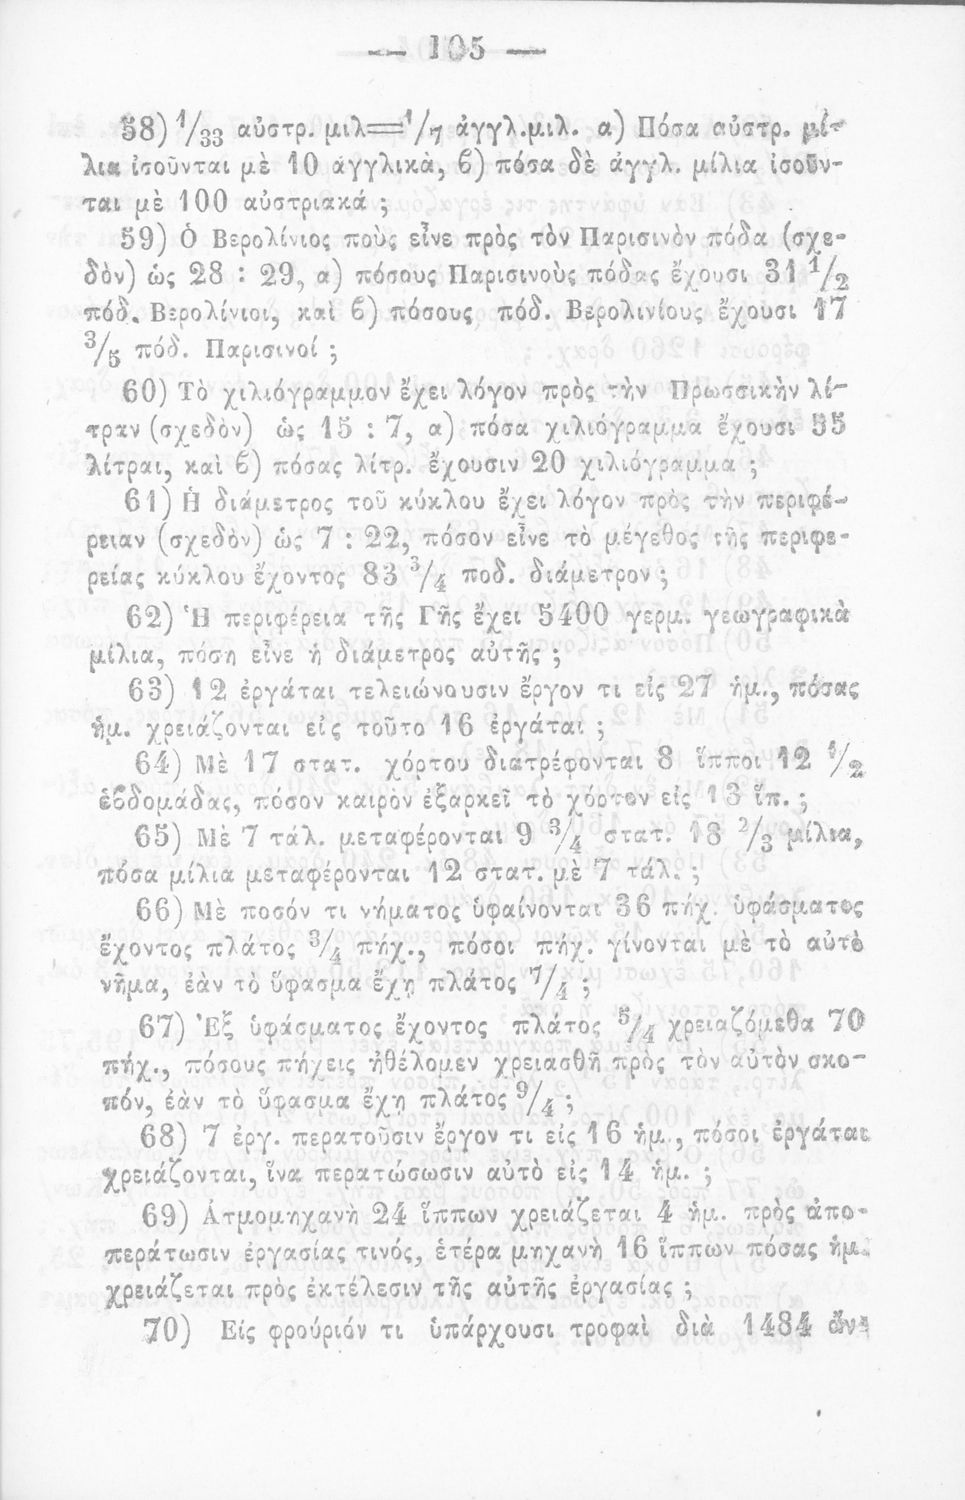 — 105 —
58) 1/33 αὐστρ. μιλ=1/7 ἀγγλ.μιλ. α) Πόσα αὐστρ. μί-
λια ἰσοῦνται μὲ 10 ἀγγλικὰ, ϐ) πόσα δὲ ἀγγλ. μίλια ἰσοῦν-
ται μὲ 100 αὐστριακά ;
59) Ὁ Βερολίνιος ποὺς εἶνε πρὸς τὸν Παρισινὸν πόδα (σχε-
δὸν) ὡς 28 : 29, α) πόσους Παρισινοὺς πόδας ἔχουσι 31 1/2
πόδ. Βερολίνιοι, καὶ ϐ) πόσους πόδ. Βερολινίους ἔχουσι 17
3/5 πόδ. Παρισινοί ;
60) Τὸ χιλιόγραμμον ἔχει λόγον πρὸς τὴν Πρωσσικὴν λί-
τραν (σχεδὸν) ὡς 15 : 7, α) πόσα χιλιόγραμμα ἔχουσι 35
λίτραι, καὶ ϐ) πόσας λίτρ. ἔχουσιν 20 χιλιόγραμμα ;
61) Ἡ διάμετρος τοῦ κύκλου ἔχει λόγον πρὸς τὴν περιφέ-
ρειαν (σχεδὸν) ὡς 7 : 22, πόσον εἶνε τὸ μέγεθος τῆς περιφε-
ρείας κύκλου ἔχοντος 83 3/4 ποδ. διάμετρον ;
62) Ἡ περιφέρεια τῆς Γῆς ἔχει 5400 γερμ. γεωγραφικὰ
μίλια, πόση εἶνε ἡ διάμετρος αὐτῆς ;
63) 12 ἐργάται τελειώνουσιν ἔργον τι εἰς 27 ἡμ., πόσας
ἡμ. χρειάζονται εἰς τοῦτο 16 ἐργάται ;
64) Μὲ 17 στατ. χόρτου διατρέφονται 8 ἵπποι 12 1/2
ἑϐδομάδας, πόσον καιρὸν ἐξαρκεῖ τὸ χόρτον εἰς 13 ἵπ. ;
65) Μὲ 7 τάλ. μεταφέρονται 9 3/4 στατ. 18 2/3 μίλια,
πόσα μίλια μεταφέρονται 12 στατ. μὲ 7 τάλ. ;
66) Μὲ ποσόν τι νήματος ὑφαίνονται 36 πήχ. ὑφάσματος
ἔχοντος πλάτος 3/4 πήχ., πόσοι πήχ. γίνονται μὲ τὸ αὐτὸ
νῆμα, ἐὰν τὸ ὕφασμα ἔχῃ πλάτος 7/4 ;
67) Ἐξ ὑφάσματος ἔχοντος πλάτος 5/4 χρειαζόμεθα 70
πήχ., πόσους πήχεις ἠθέλομεν χρειασθῆ πρὸς τὸν αὐτὸν σκο-
πόν, ἐὰν τὸ ὕφασμα ἔχῃ πλάτος 9/4 ;
68) 7 ἐργ. περατοῦσιν ἔργον τι εἰς 16 ἡμ., πόσοι ἐργάται
χρειάζονται, ἵνα περατώσωσιν αὐτὸ εἰς 14 ἡμ. ;
69) Ἀτμομηχανὴ 24 ἵππων χρειάζεται 4 ἡμ. πρὸς ἀπο-
περάτωσιν ἐργασίας τινός, ἑτέρα μηχανὴ 16 ἵππων πόσας ἡμ.
χρειάζεται πρὸς ἐκτέλεσιν τῆς αὐτῆς ἐργασίας ;
70) Εἰς φρούριόν τι ὑπάρχουσι τροφαὶ διὰ 1484 ἄν-